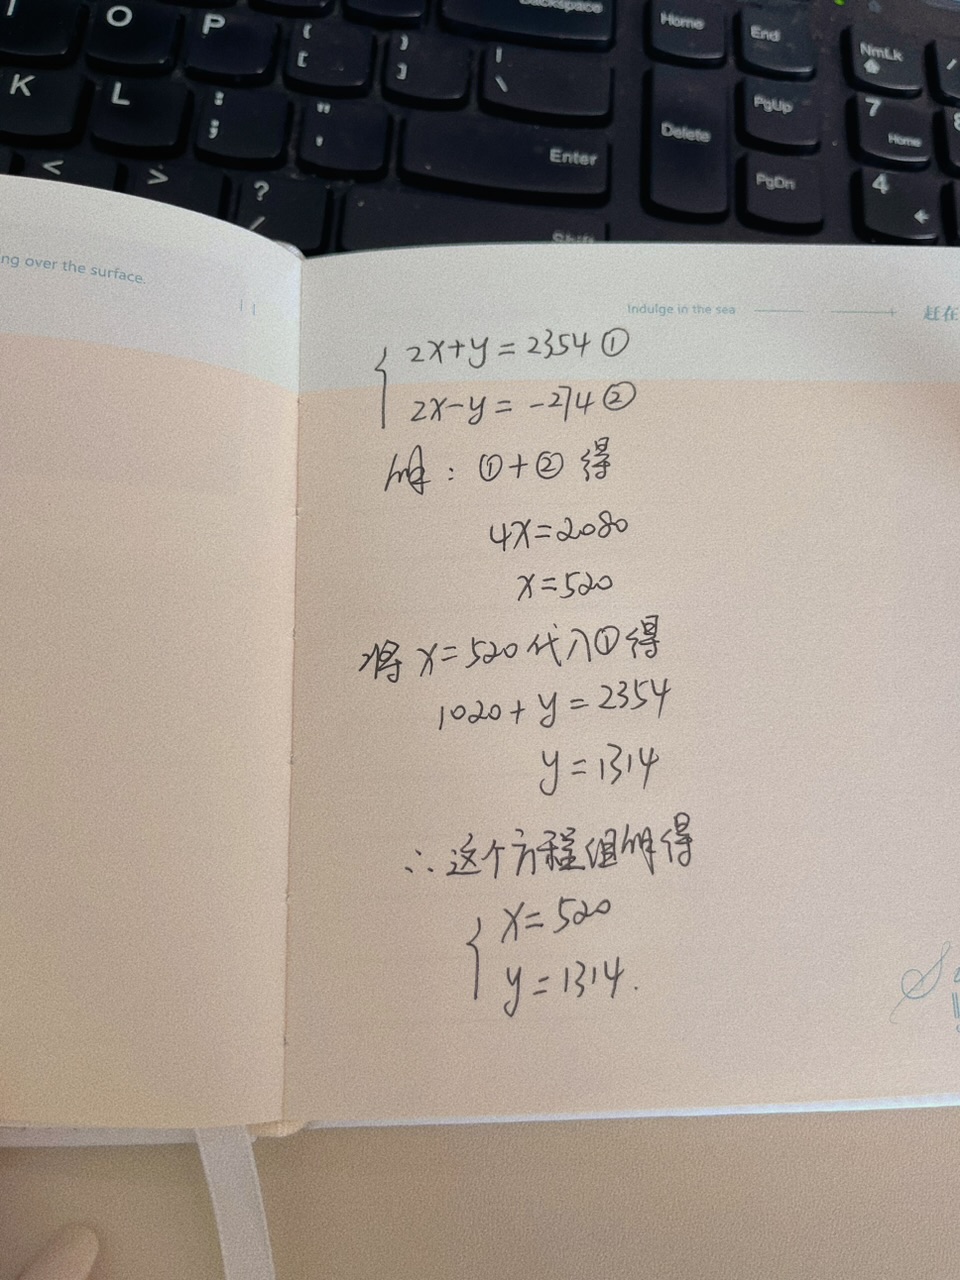 Backspace
Home
End
NmLk
O
P
{
[
}
]
|
\
K
L
:
;
"
'
Enter
Delete
PgUp
PgDn
7
Home
4
<
>
?
/
Shift
ng over the surface.
Indulge in the sea
赶在
2x+y=2354①
2x-y=-274②
解：①+②得
4x=2080
x=520
将x=520代入①得
1020+y=2354
y=1314
∴这个方程组解得
x=520
y=1314.